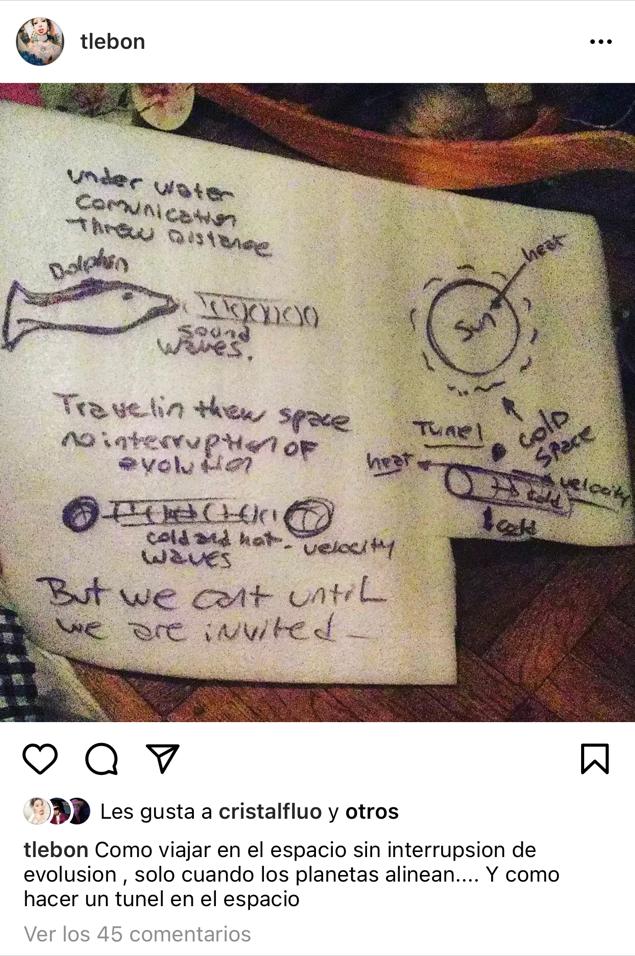 tlebon
under water
comunication
threw Distance
Dolphin
sound
waves.
heat
Sun
cold
space
Tunel
heat
velocity
cold
cold
Travelin thew space
no interruption OF
evolution
cold and hot - velocity
waves
But we cant until
we are invited -
Les gusta a cristalfluo y otros
tlebon Como viajar en el espacio sin interrupsion de
evolusion , solo cuando los planetas alinean.... Y como
hacer un tunel en el espacio
Ver los 45 comentarios